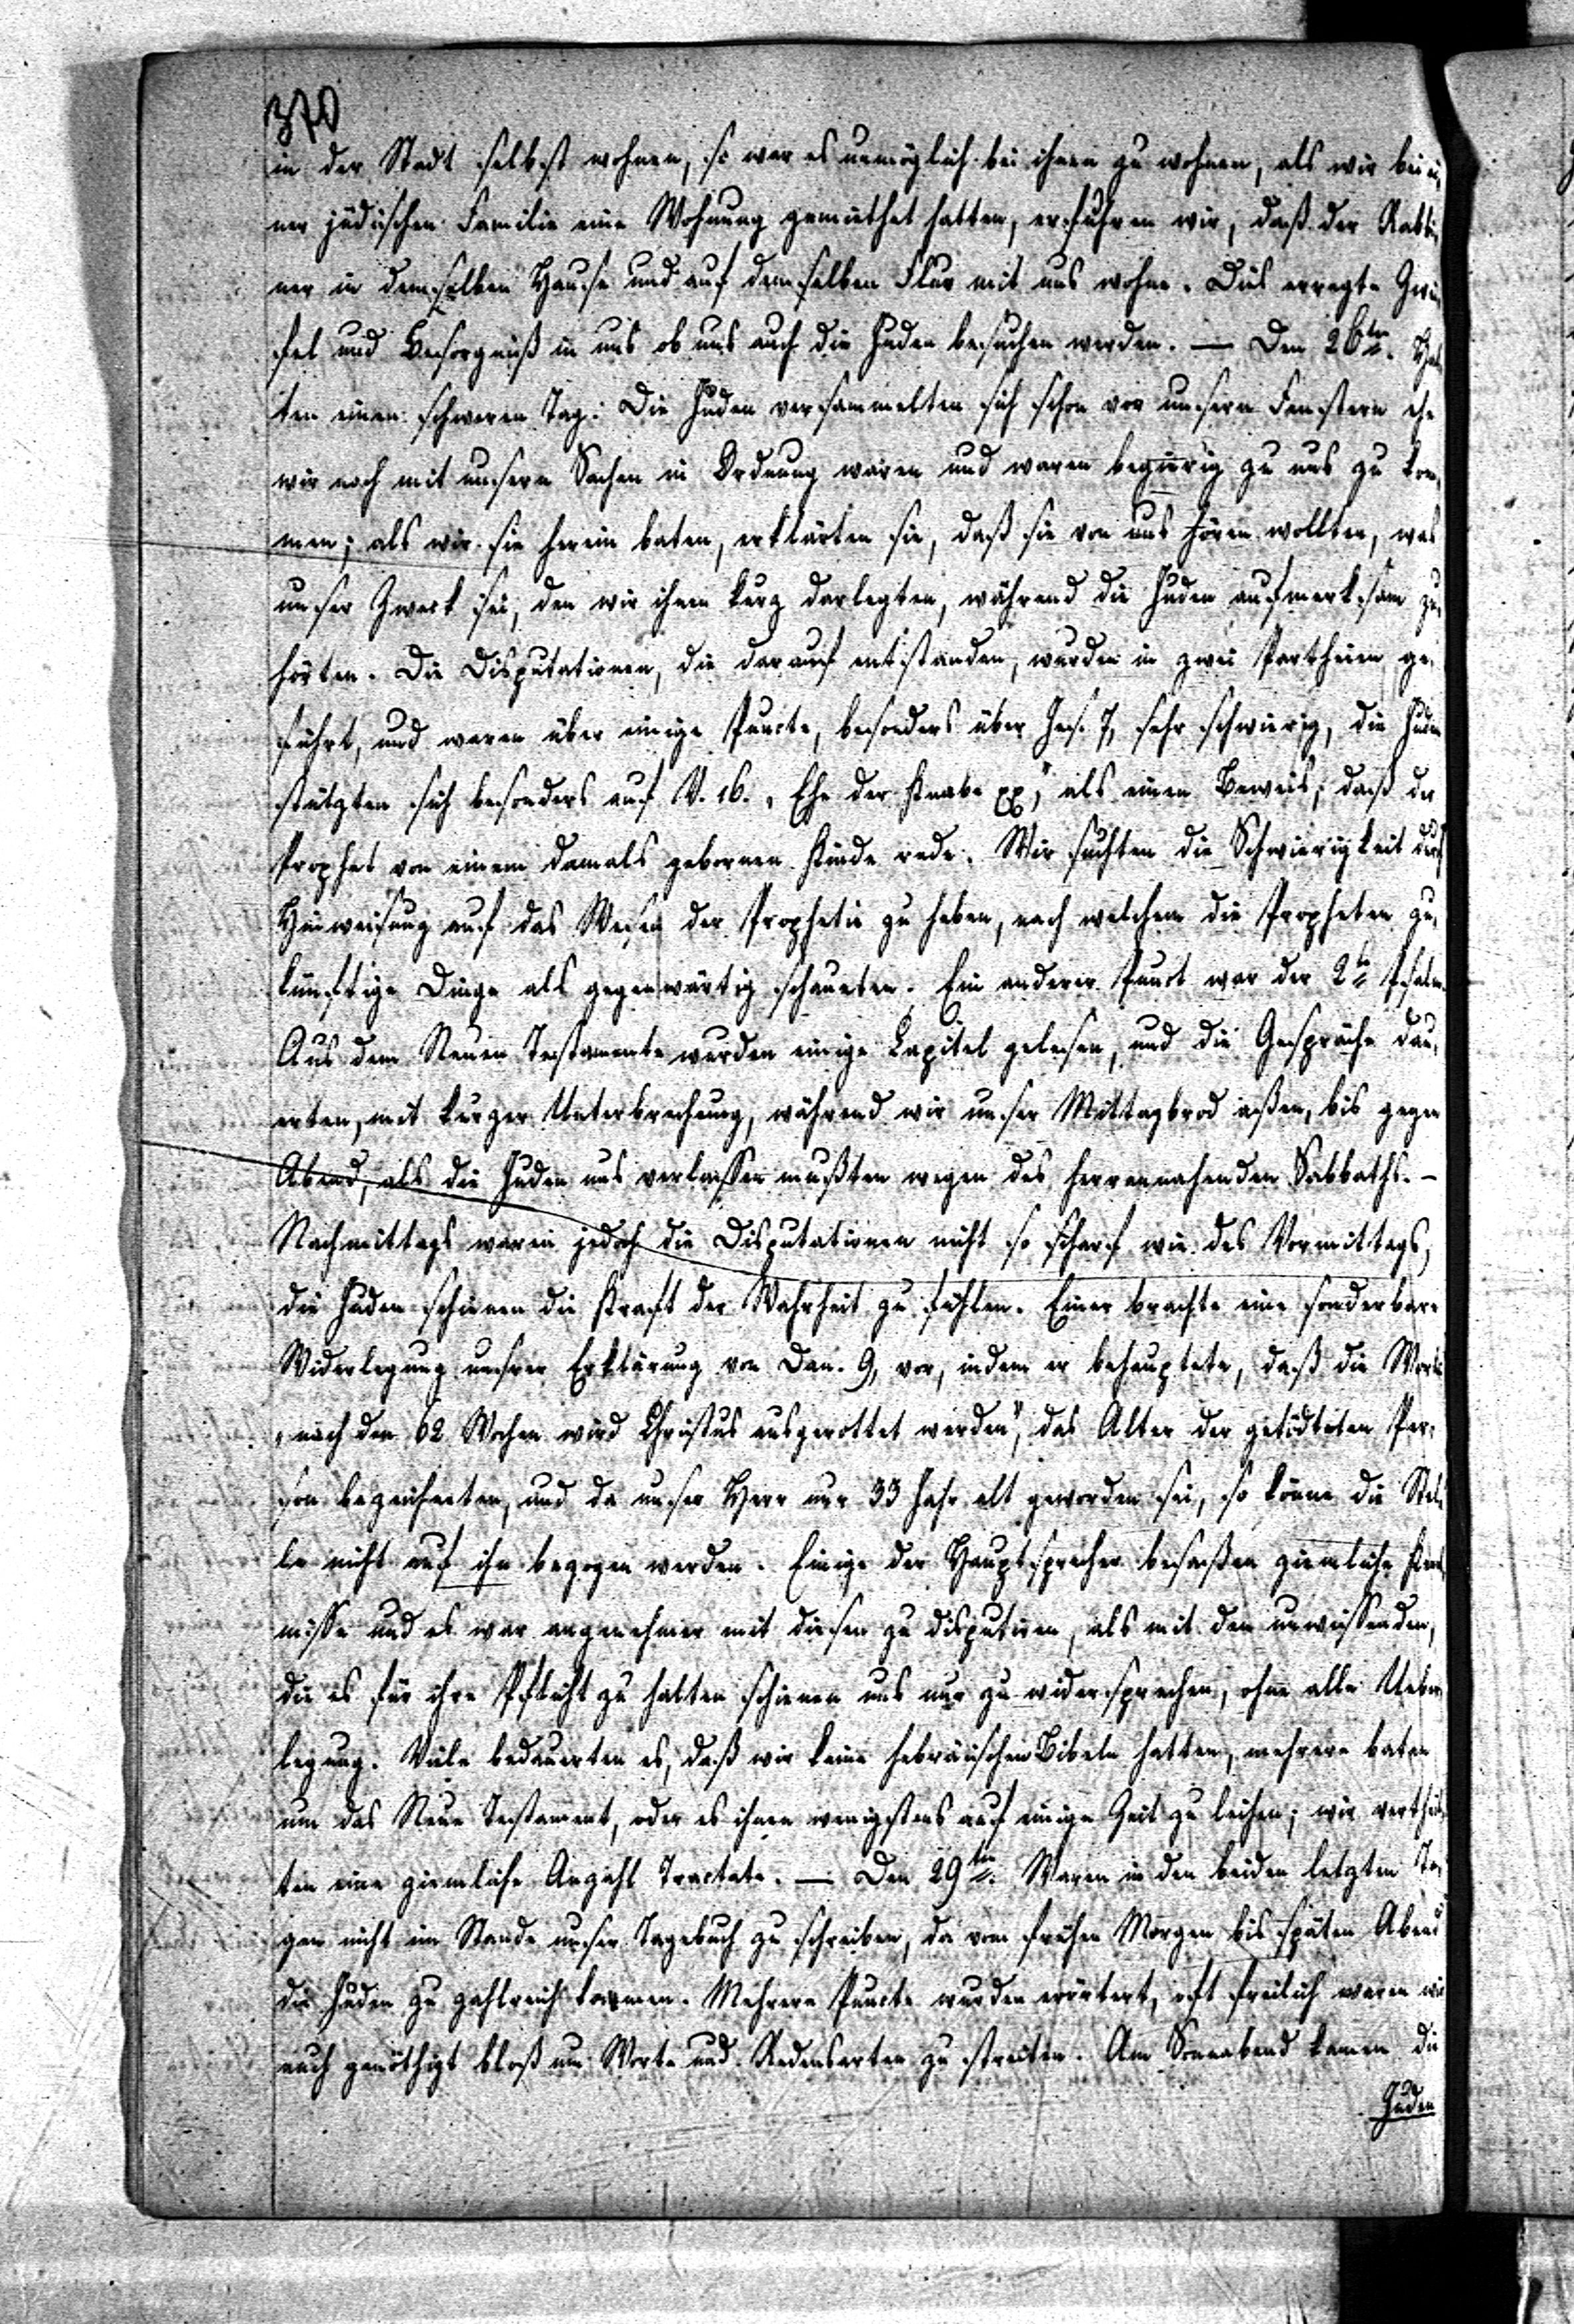 370
in der Stadt selbst wohnen, so war es unmöglich bei ihnen zu wohnen, als wir bei ei-
ner jüdischen Familie eine Wohnung gemiethet hatten, erfuhren wir, daß der Rabbi-
ner in demselben Hause und auf demselben Flur mit uns wohne. Dies erregte Zwei-
fel und Besorgniß in uns ob uns auch die Juden besuchen werden. — Den 26ten. Hat-
ten einen schweren Tag. Die Juden versammelten sich schon vor unsern Fenstern ehe
wir noch mit unsern Sachen in Ordnung waren und waren begierig zu uns zu kom-
men; als wir sie herein baten, erklärten sie, daß sie von uns hören wollten, was
unser Zweck sei, den wir ihnen kurz darlegten, während die Juden aufmerksam zu-
hörten. Die Disputationen, die darauf entstanden, wurden in zwei Partheien ge-
führt, und waren über einige Puncte, besonders über Jes. 7, sehr schwierig, die Juden
stützten sich besonders auf V. 16. „Ehe der Knabe xx," als einen Beweis, daß der
Prophet von einem damals gebornen Kinde rede. Wir suchten die Schwierigkeit durch
Hinweisung auf das Wesen der Prophetie zu heben, nach welchem die Propheten zu-
künftige Dinge als gegenwärtig schaueten. Ein anderer Punct war der 2te Psalm.
Aus dem Neuen Testamente wurden einige Capitel gelesen, und die Gespräche dau-
erten, mit kurzer Unterbrechung, während wir unser Mittagbrod aßen, bis gegen
Abend, als die Juden uns verlassen mußten wegen des herrannahenden Sabbaths. —
Nachmittags waren jedoch die Disputationen nicht so scharf wie des Vormittags,
die Juden schienen die Kraft der Wahrheit zu fühlen. Einer brachte eine sonderbare
Widerlegung unsrer Erklärung von Dan. 9, vor, indem er behauptete, daß die Worte
„nach den 62 Wochen wird Christus ausgerottet werden", das Alter der getödteten Per-
son bezeichneten, und da unser Herr nur 33 Jahr alt geworden sei, so könne die Stel-
le nicht auf ihn bezogen werden. Einige der Hauptsprecher besaßen ziemliche Kennt-
nisse und es war angenehmer mit diesen zu disputiren, als mit den unwissenden,
die es für ihre Pflicht zu halten schienen uns nur zu widersprechen, ohne alle Ueber-
legung. Viele bedauerten es, daß wir keine hebräischen Bibeln hatten, mehrere baten
um das Neue Testament, oder es ihnen wenigstens auf einige Zeit zu leihen; wir vertheil-
ten eine ziemliche Anzahl Tractate. — Den 29ten. Waren in den beiden letzten Ta-
gen nicht im Stande unser Tagebuch zu schreiben, da vom frühen Morgen bis späten Abend
die Juden zu zahlreich kommen. Mehrere Puncte wurden erörtert, oft freilich waren wir
auch genöthigt bloß um Worte und Redensarten zu streiten. Am Sonnabend kamen die
Juden